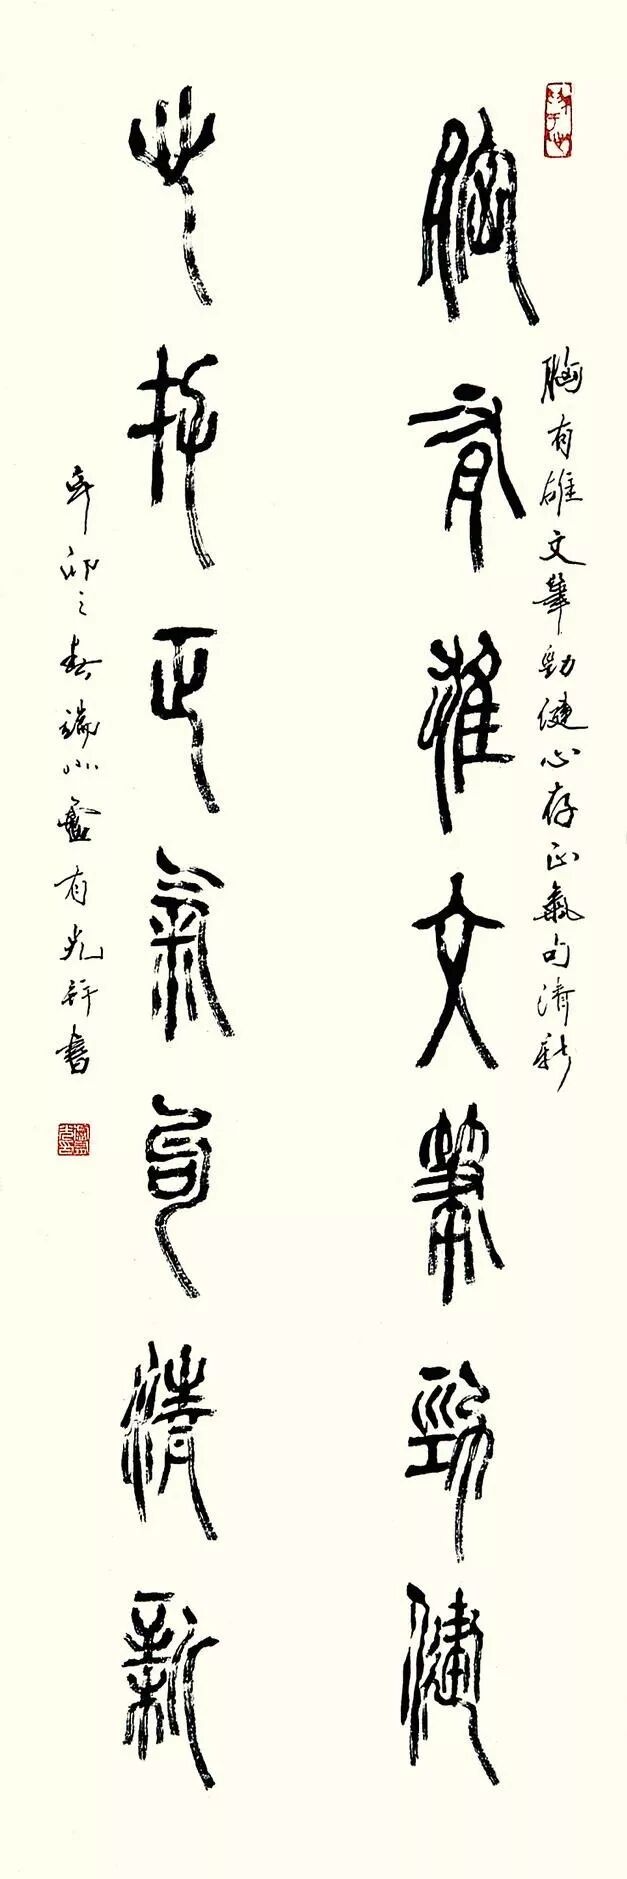 胸有雄文筆勁健心存正氣句清新
胸有雄文筆勁健
心存正氣句清新
辛卯之春端州盧有光并書